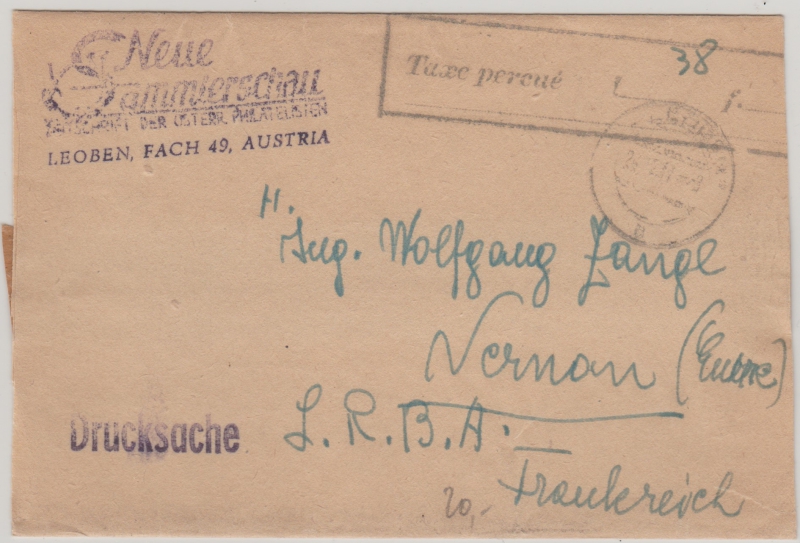 Neue
Sammlerschau
ZEITSCHRIFT DER ÖSTERR. PHILATELISTEN
LEOBEN, FACH 49, AUSTRIA
Taxe percué 38 f.
H.
Ing. Wolfgang Zangl
Vernon (Eure)
L. R. B. A.
Drucksache
Frankreich
20,-